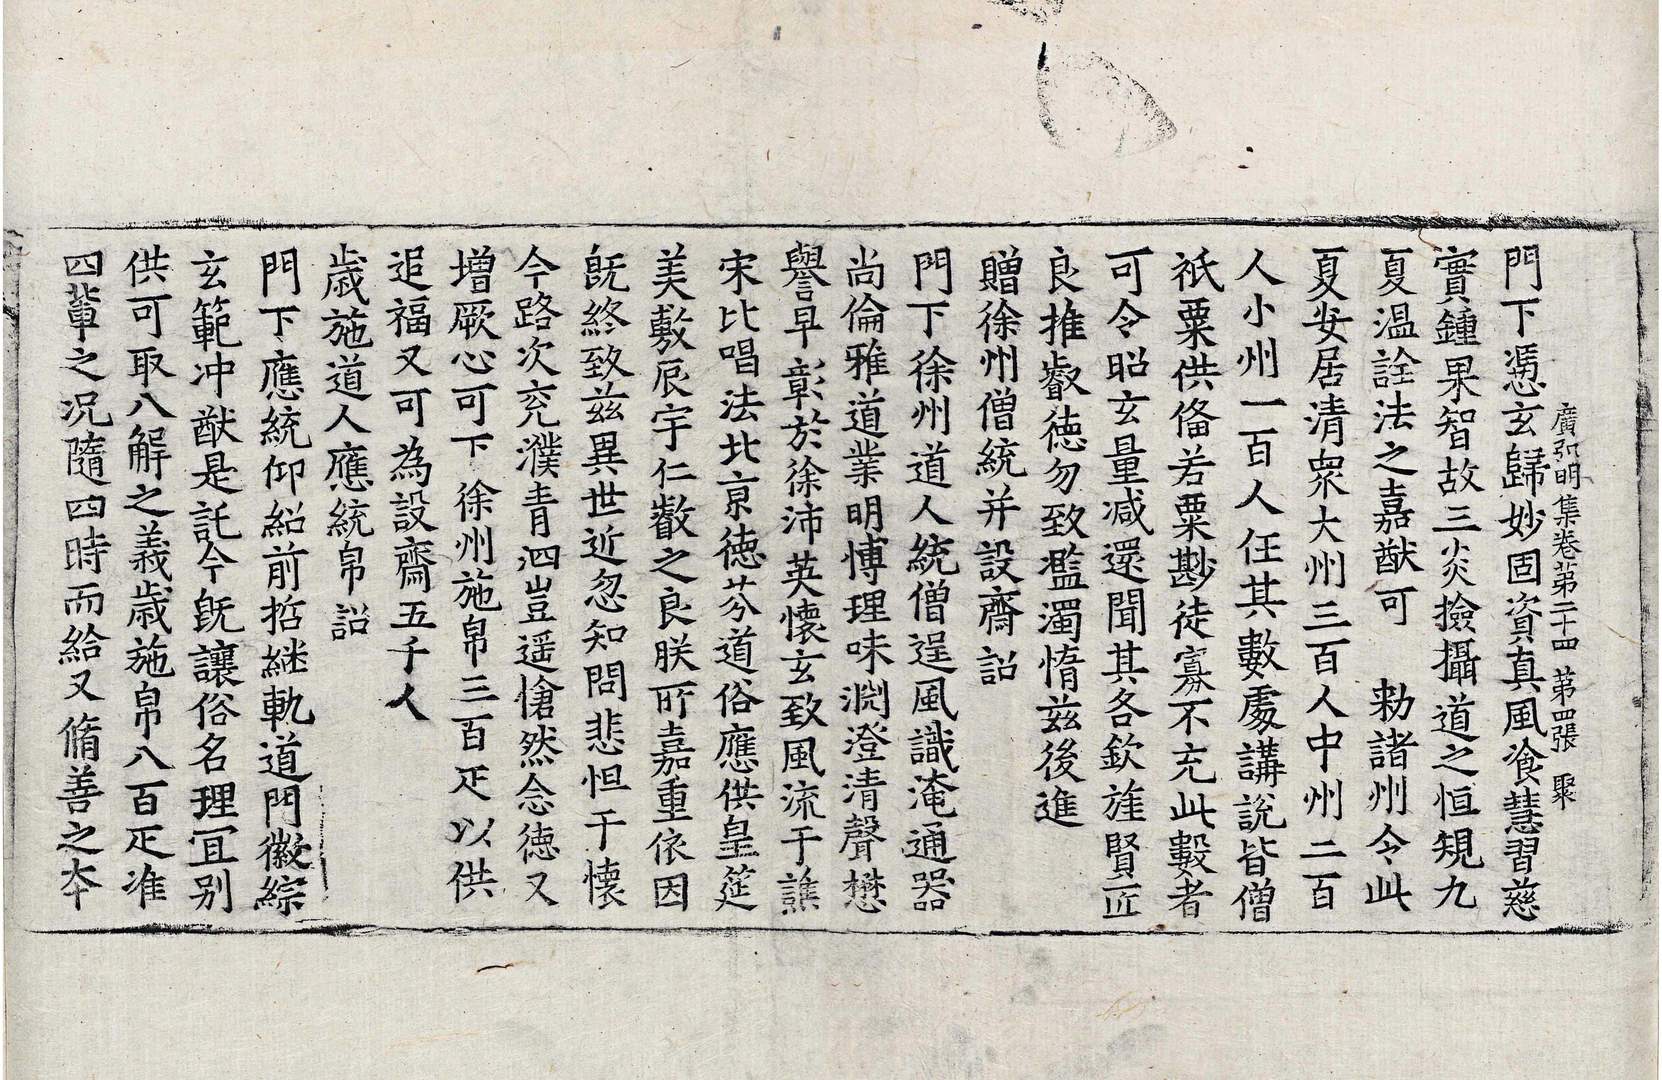 廣弘明集卷第二十四 第四張 聚
門下憑玄歸妙固資真風飡慧習慈
實鍾果智故三炎撿攝道之恒規九
夏溫詮法之嘉猷可 勑諸州令此
夏安居清衆大州三百人中州二百
人小州一百人任其數處講說皆僧
祇粟供俻若粟尠徒寡不充此數者
可令昭玄量減還聞其各欽旌賢匠
良推叡德勿致濫濁惰茲後進
贈徐州僧統并設齋詔
門下徐州道人統僧逞風識淹通器
尚倫雅道業明愽理味淵澄清聲懋
譽早彰於徐沛英懷玄致風流于譙
宋比唱法北京德芬道俗應供皇筵
美敷宸宇仁叡之良朕所嘉重依因
旣終致茲異世近忽知問悲怛于懷
今路次兖濮青泗豈遥愴然念德又
增厥心可下徐州施帛三百疋以供
追福又可為設齋五千人
歲施道人應統帛詔
門下應統仰紹前哲継軌道門徽綜
玄範冲猷是託今旣讓俗名理冝别
供可取八解之義歲施帛八百疋准
四軰之况隨四時而給又脩善之本